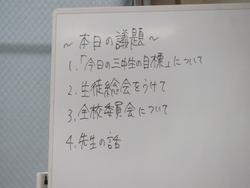 ～本日の議題～
1.「今日の三中生の目標」について
2.生徒総会をうけて
3.全校委員会について
4.先生の話